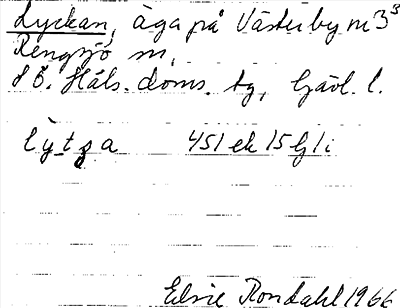 Lyckan, äga på Västerby m 3³
Rengsjö sn,
SÖ. Häls. doms. tg, Gävl. l.
lytza 451 ek 15 Gli
Elsie Rondahl 1966